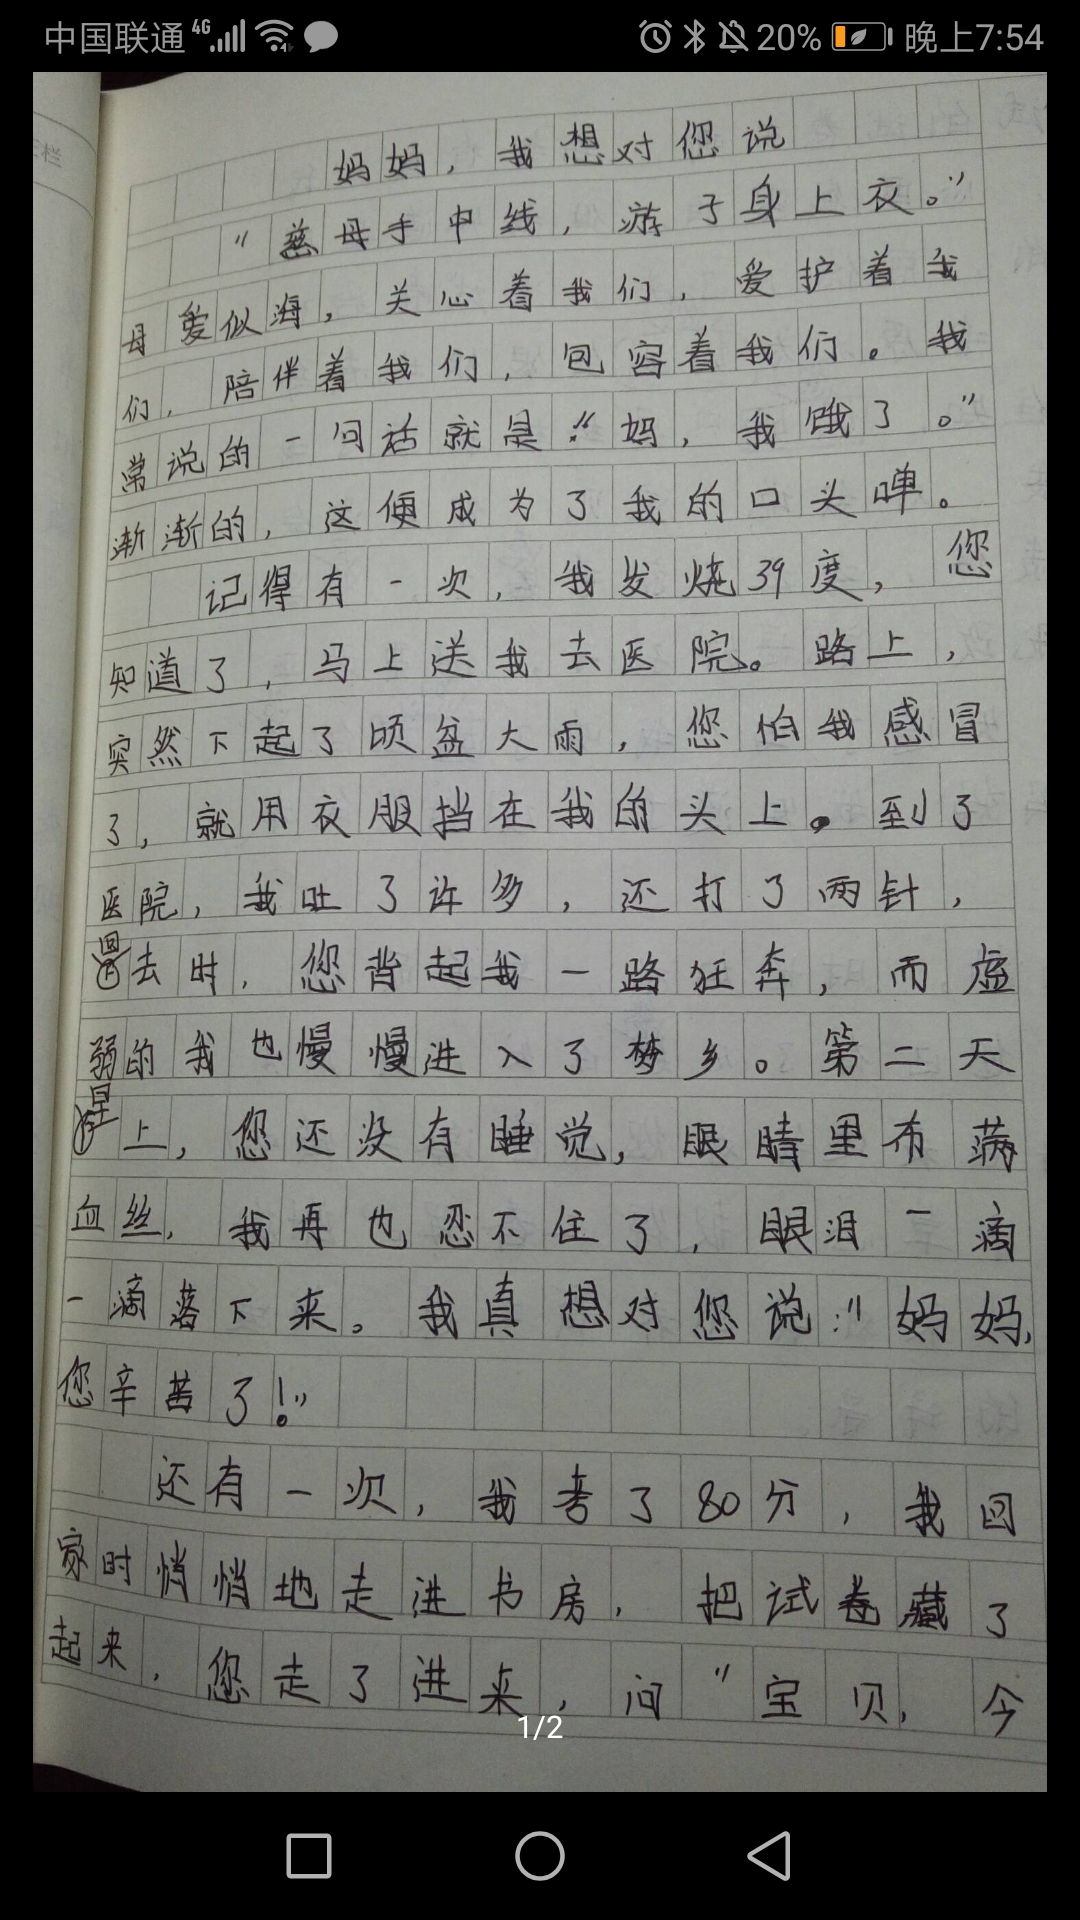 中国联通 4G 20% 晚上7:54
妈妈，我想对您说
“慈母手中线，游子身上衣。”
母爱似海，关心着我们，爱护着我
们，陪伴着我们，包容着我们。我
常说的一句话就是：“妈，我饿了。”
渐渐的，这便成为了我的口头啴。
记得有一次，我发烧39度，您
知道了，马上送我去医院。路上，
突然下起了顷盆大雨，您怕我感冒
了，就用衣服挡在我的头上。到了
医院，我吐了许多，还打了两针，
回去时，您背起我一路狂奔，而虚
弱的我也慢慢进入了梦乡。第二天
早上，您还没有睡觉，眼睛里布满
血丝，我再也忍不住了，眼泪一滴
一滴落下来。我真想对您说：“妈妈，
您辛苦了！”
还有一次，我考了80分，我回
家时悄悄地走进书房，把试卷藏了
起来，您走了进来，问“宝贝，今
1/2